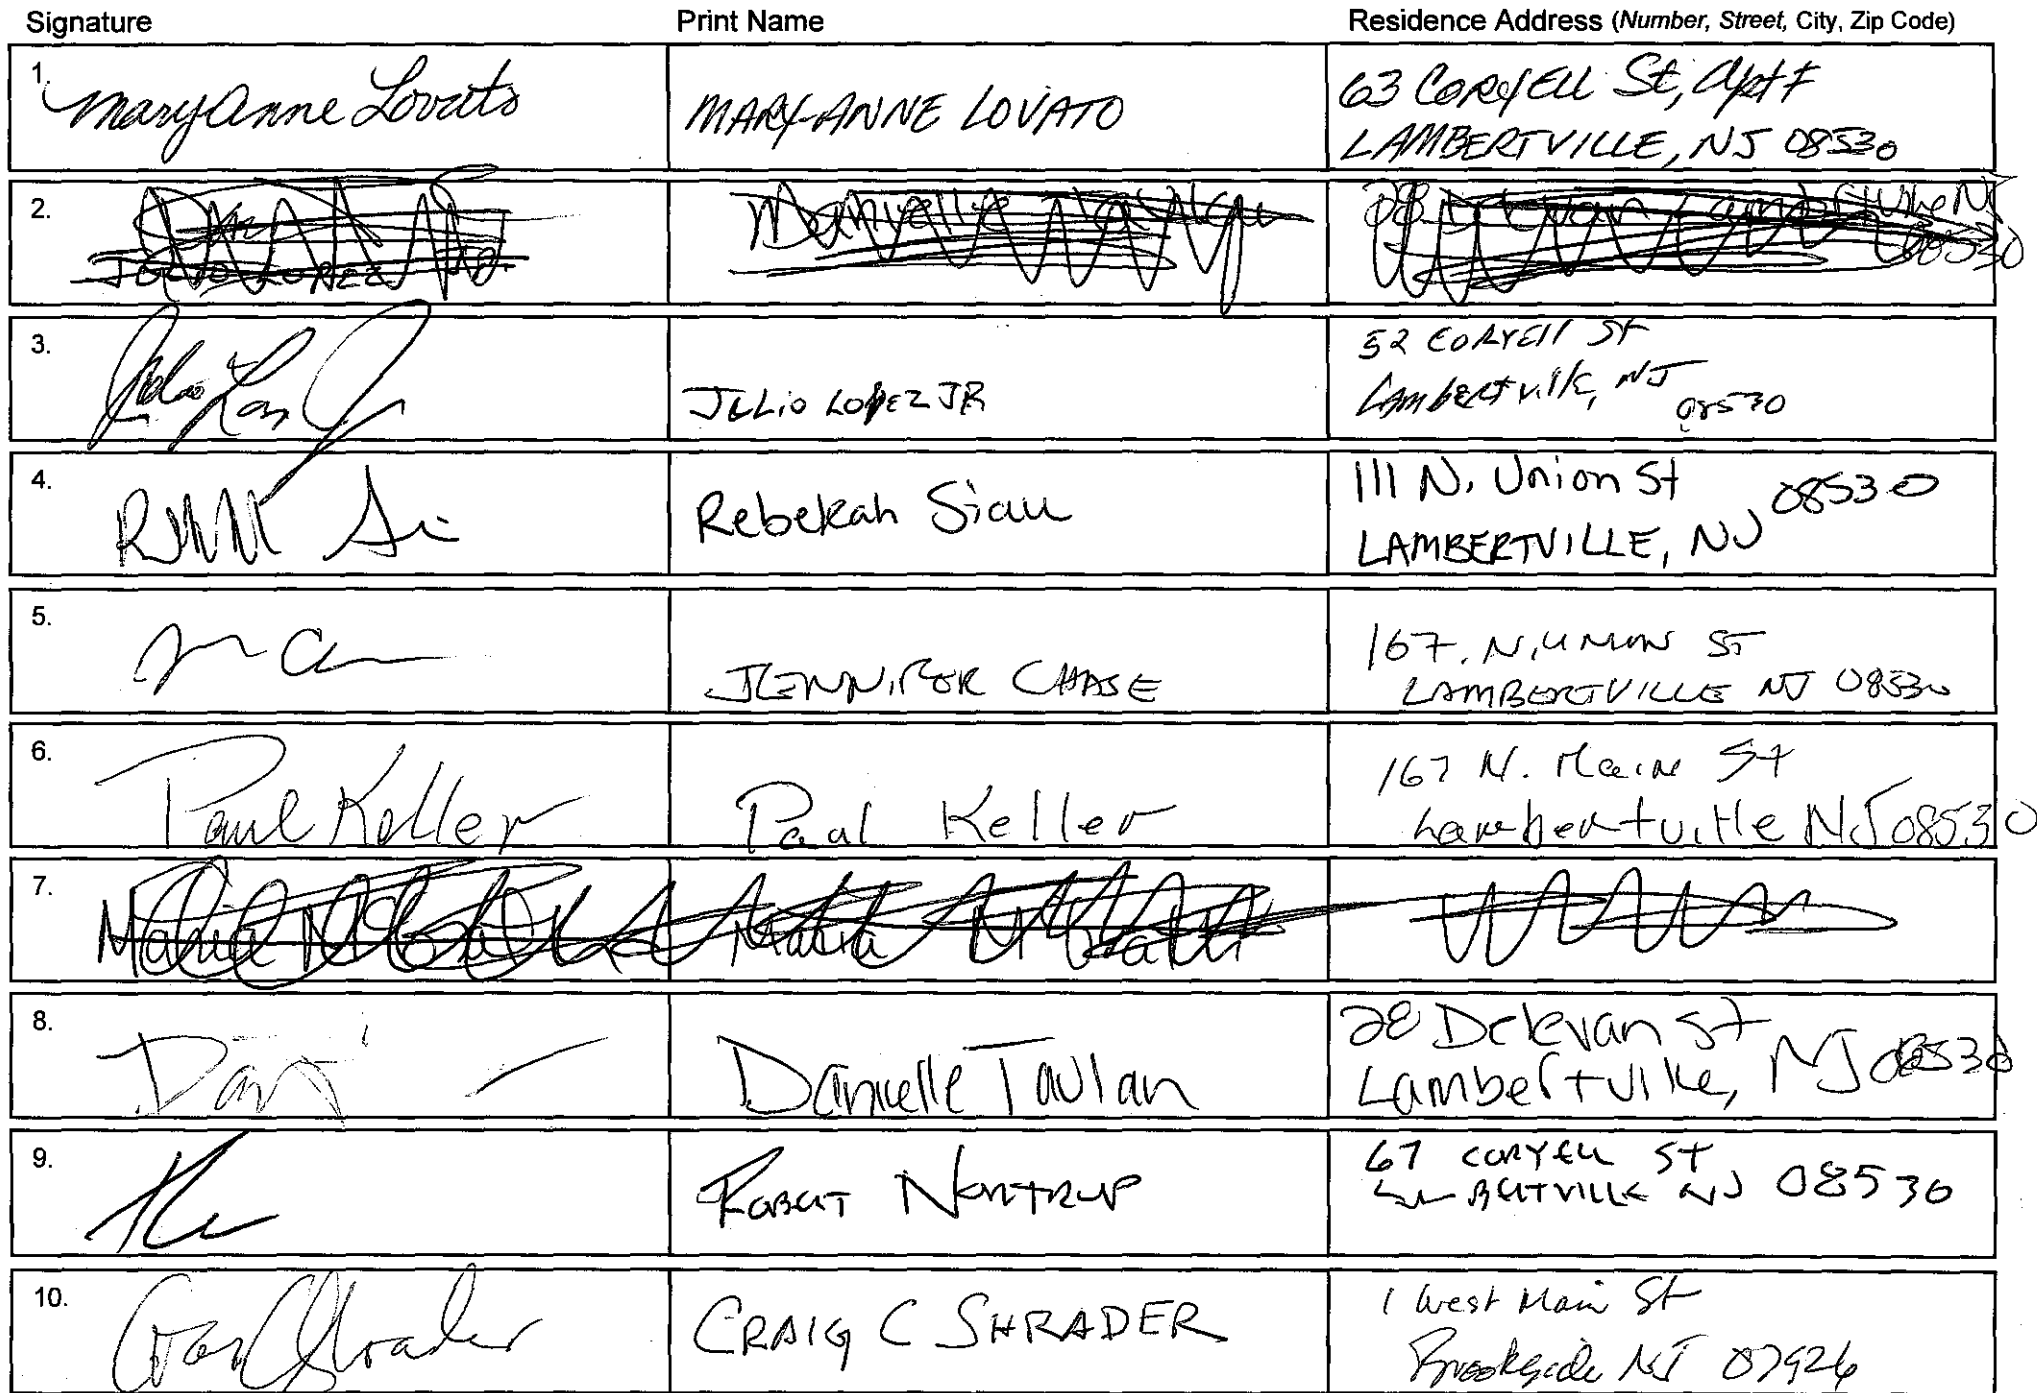 Signature Print Name Residence Address (Number, Street, City, Zip Code)
1. MaryAnne Lovato MARY-ANNE LOVATO 63 CORYELL St, Apt F
LAMBERTVILLE, NJ 08530
2. Danielle 28 Delevan Lambertville NJ
08530
JULIO LOPEZ
3. Julio JULIO LOPEZ JR 52 CORYEll ST
LAMbERTvillE, NJ
08530
4. Rebekah Siau 111 N. Union St 08530
LAMBERTVILLE, NJ
5. JENNIFER CHASE 167. N. UNION ST
LAMBERTVILLE NJ 08530
6. Paul Keller Paul Keller 167 N. Main St
Lambertville NJ 08530
7. Maria Maria
8. Danielle Tavlan 28 Delevan St
Lambertville, NJ 08530
9. ROBERT NONTRUP 67 CORYELL ST
LAMBERTVILLE NJ 08530
10. Craig C Shrader CRAIG C SHRADER 1 West Main St
Brookside NJ 07926